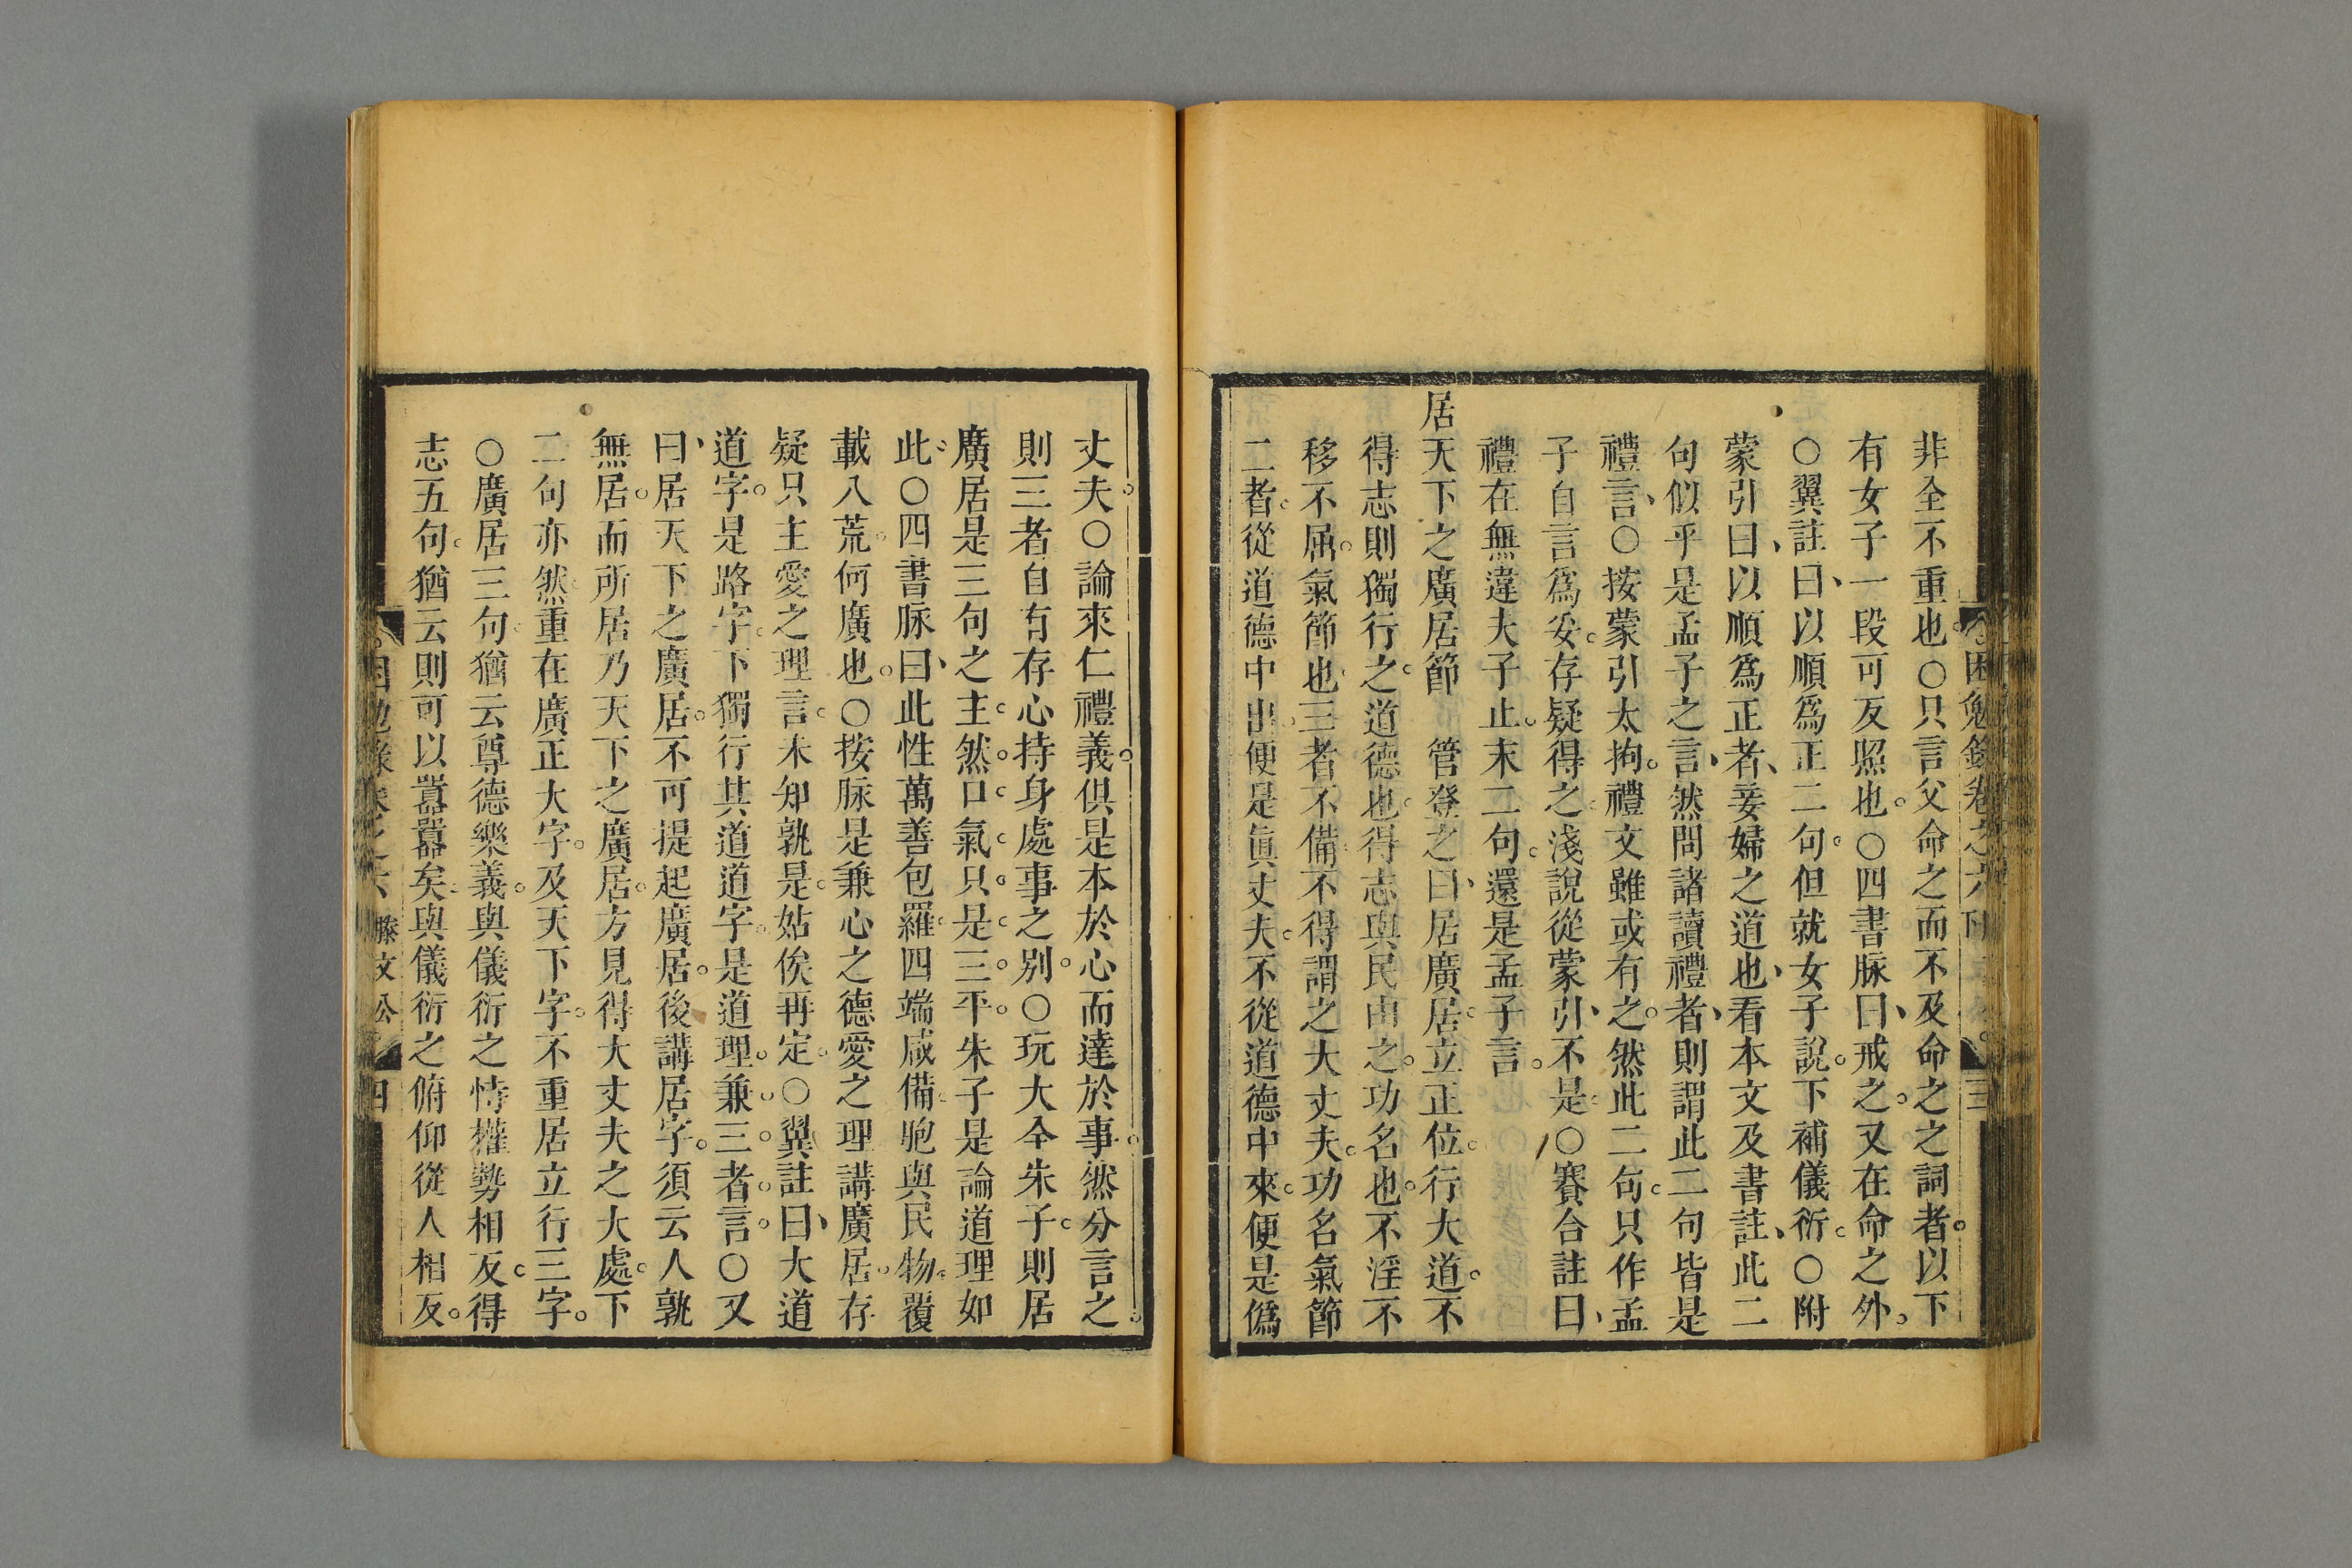 非全不重也○只言父命之而不及命之之詞者以下
有女子一段可反照也○四書脉曰戒之又在命之外
○翼註曰以順爲正二句但就女子說下補儀衍○附
蒙引曰以順爲正者妾婦之道也看本文及書註此二
句似乎是孟子之言然問諸讀禮者則謂此二句皆是
禮言○按蒙引太拘禮文雖或有之然此二句只作孟
子自言爲妥存疑得之淺說從蒙引不是○賽合註曰
禮在無違夫子止末二句還是孟子言
居天下之廣居節　管登之曰居廣居立正位行大道不
得志則獨行之道德也得志與民由之功名也不淫不
移不屈氣節也三者不備不得謂之大丈夫功名氣節
二者從道德中出便是眞丈夫不從道德中來便是僞
困勉錄卷之六
三
丈夫○論來仁禮義俱是本於心而達於事然分言之
則三者自有存心持身處事之別○玩大全朱子則居
廣居是三句之主然口氣只是三平朱子是論道理如
此○四書脉曰此性萬善包羅四端咸備胞與民物覆
載八荒何廣也○按脉是兼心之德愛之理講廣居存
疑只主愛之理言未知孰是姑俟再定○翼註曰大道
道字是路字下獨行其道道字是道理兼三者言○又
曰居天下之廣居不可提起廣居後講居字須云人孰
無居而所居乃天下之廣居方見得大丈夫之大處下
二句亦然重在廣正大字及天下字不重居立行三字
○廣居三句猶云尊德樂義與儀衍之恃權勢相反得
志五句猶云則可以囂囂矣與儀衍之俯仰從人相反
困勉錄卷之六　滕文公
四